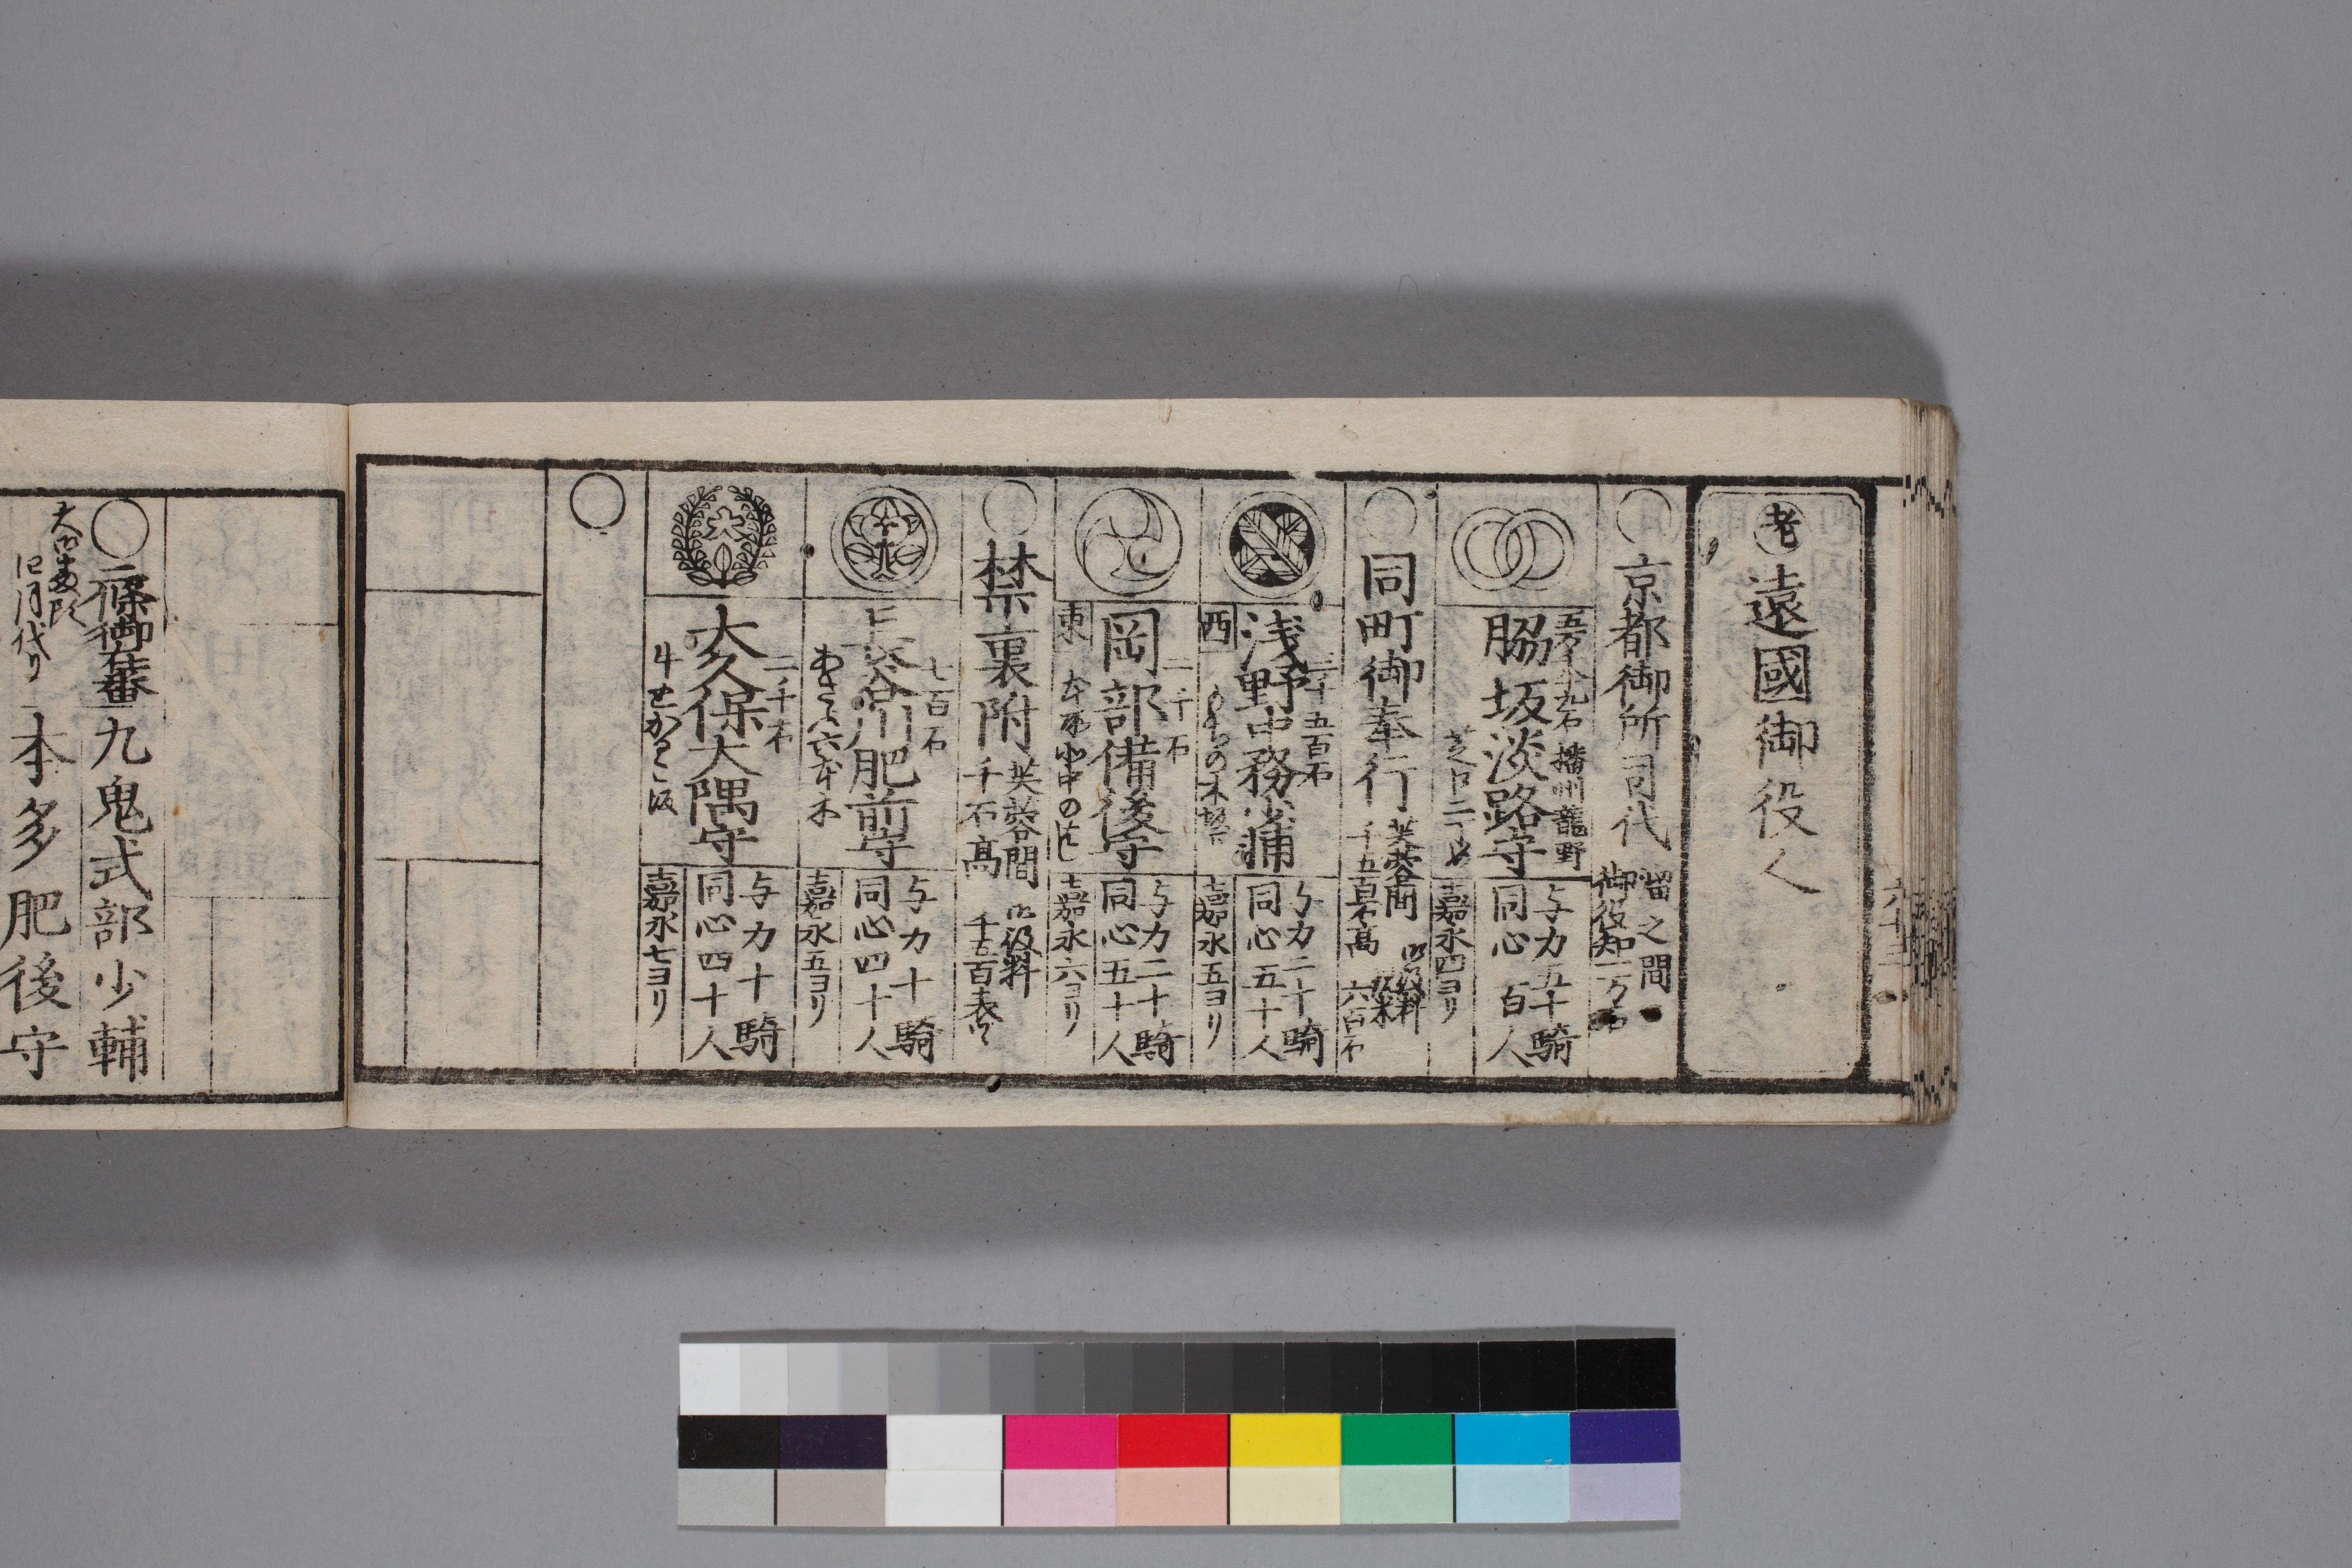 老
遠國御役人
京都御所司代
溜之間
御役知一万石
播州龍野
脇坂淡路守
芝口二丁め
与力五十騎
同心百人
嘉永四ヨリ
同町御奉行
芙蓉間
千五百石高
御役料
六百石
五百石
浅野中務少輔
西
与力二十騎
同心五十人
嘉永五ヨリ
二千石
岡部備後守
東
与力二十騎
同心五十人
嘉永六ヨリ
禁裏附
芙蓉間
千石高
御役料
千五百表ツヽ
七百石
長谷川肥前守
与力十騎
同心四十人
嘉永五ヨリ
二千石
大久保大隅守
与力十騎
同心四十人
嘉永七ヨリ
二條御在番
九鬼式部少輔
大御番頭
四月代り
本多肥後守